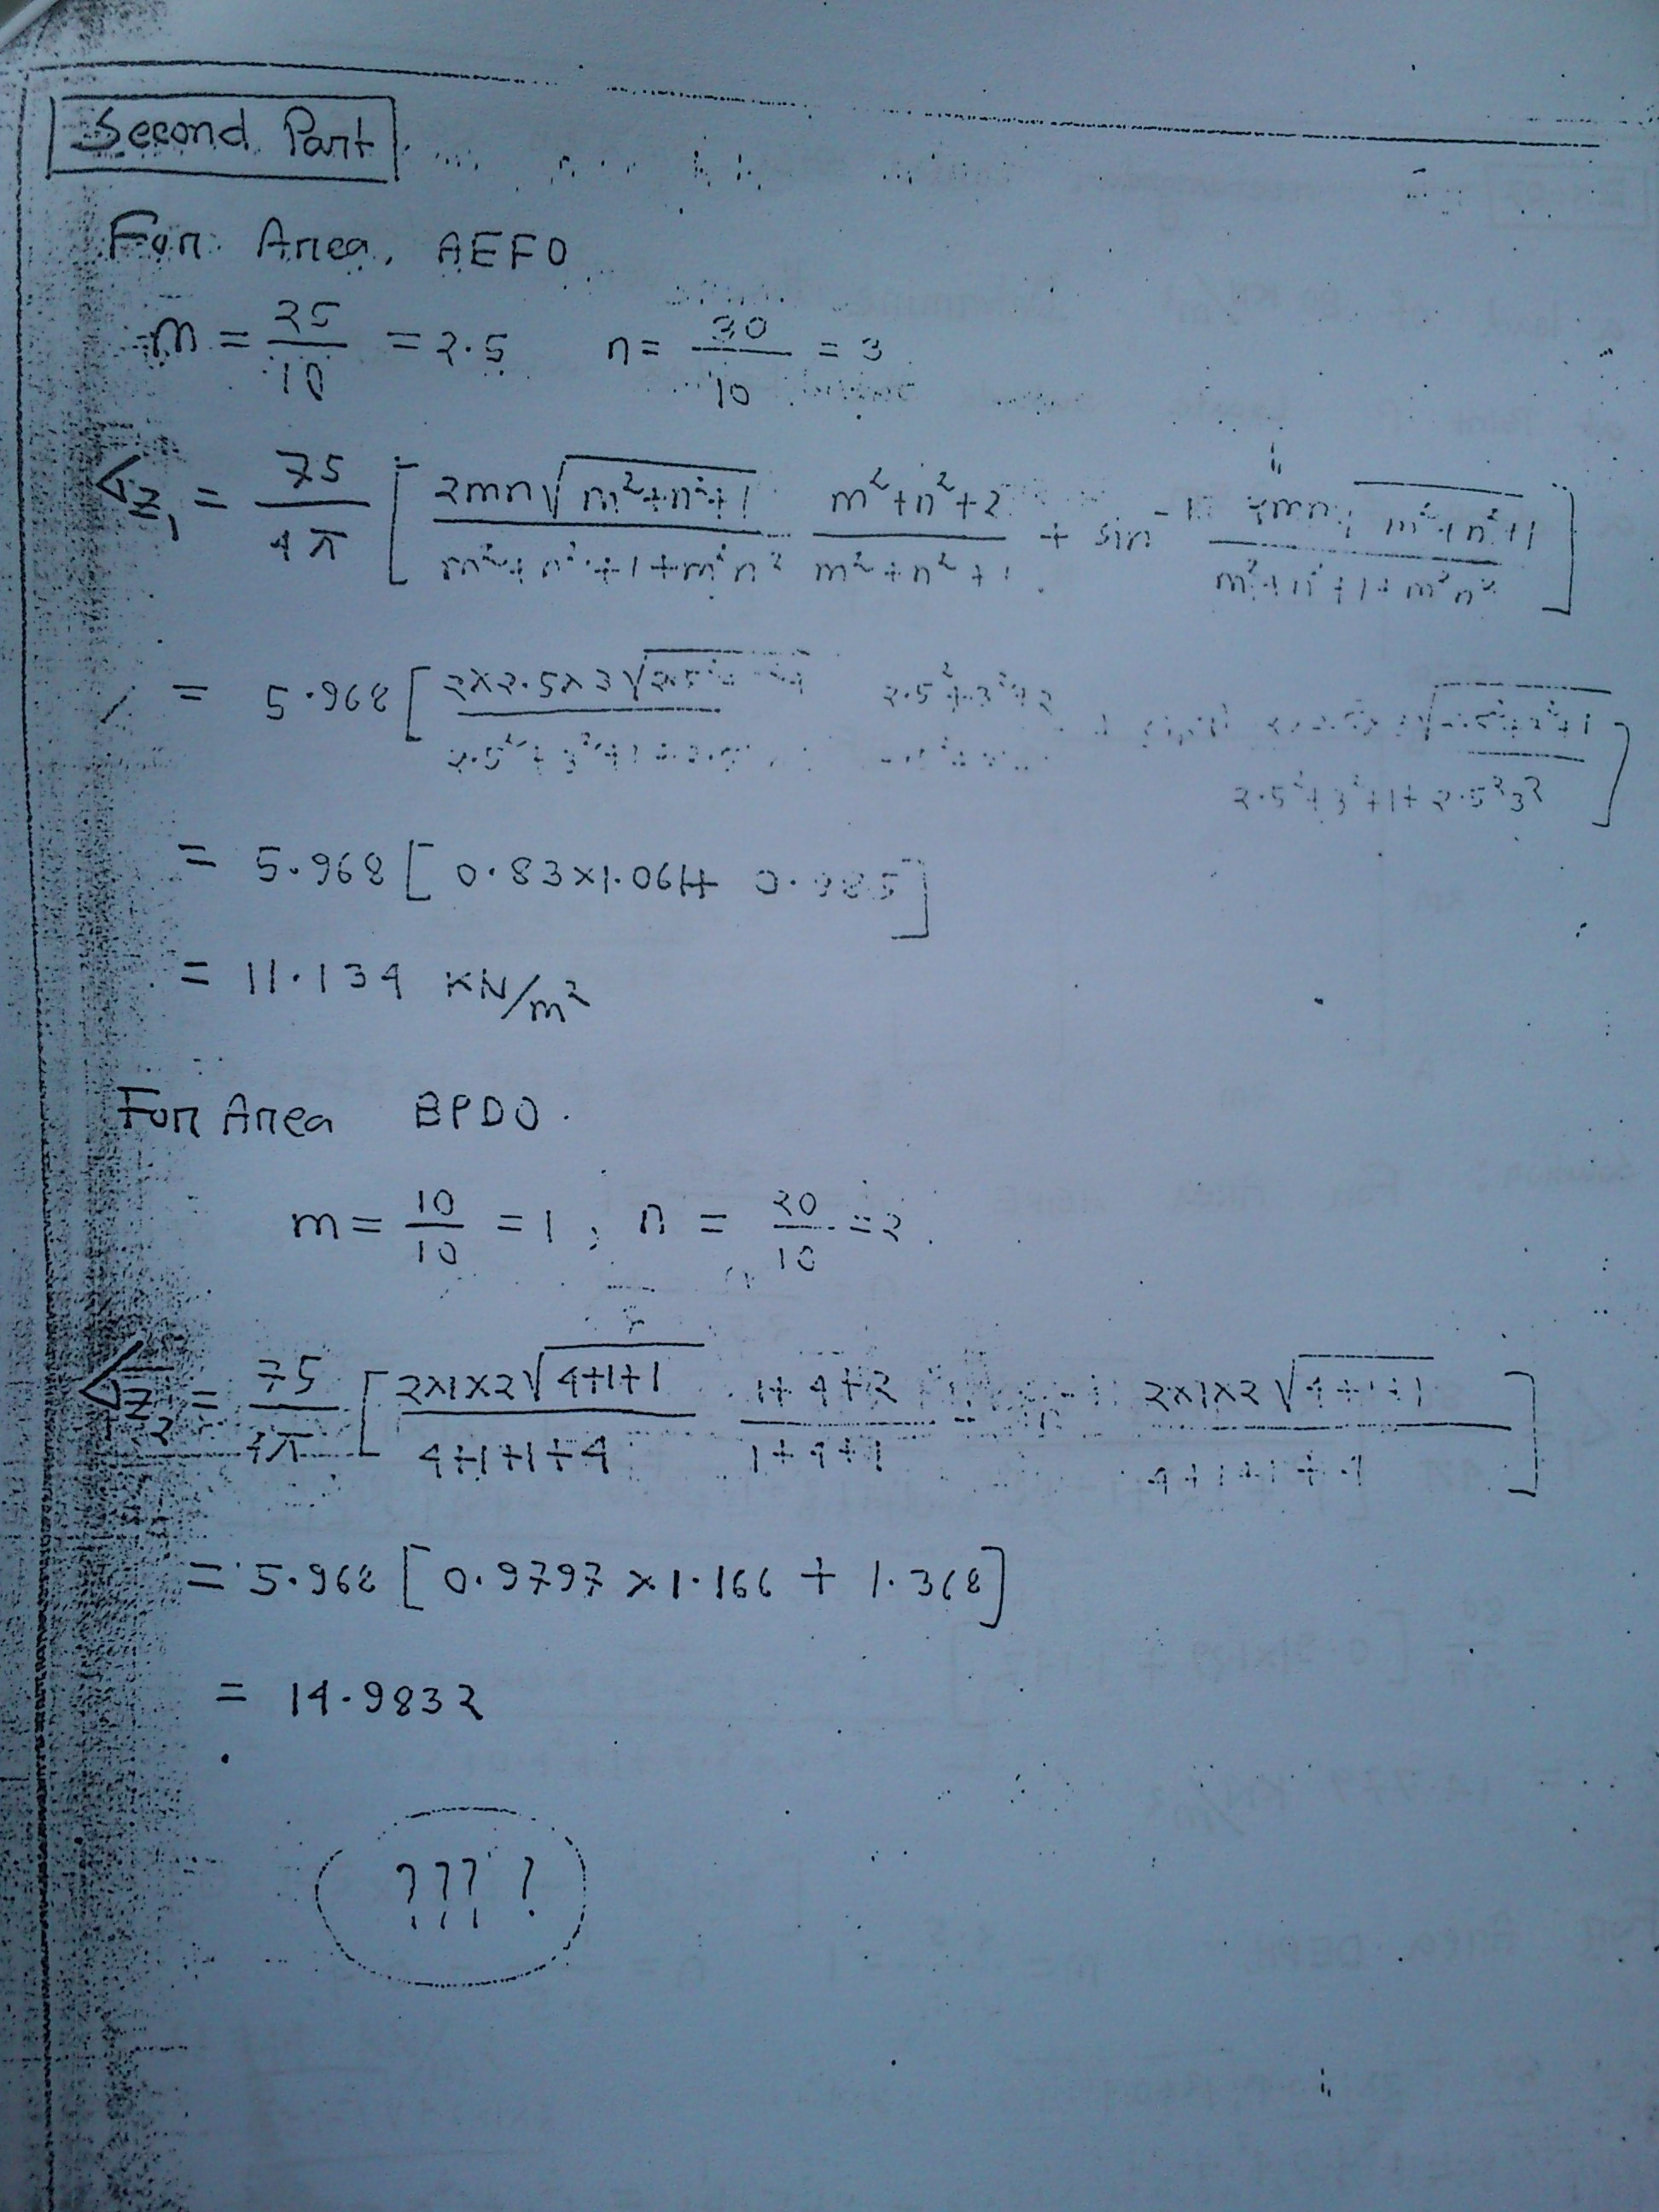 Second Part
For Area, AEFO
m = 25/10 = 2.5 n = 30/10 = 3
σz₁ = 75/4π [ 2mn√(m²+n²+1) / (m²+n²+1+m²n²) (m²+n²+2) / (m²+n²+1) + sin⁻¹ 2mn√(m²+n²+1) / (m²+n²+1+m²n²) ]
= 5.968 [ 2×2.5×3√ 2.5²+3²+2 / 2.5²+3²+1+2.5²3² ]
= 5.968 [ 0.83×1.061+ 0.985 ]
= 11.134 KN/m²
For Area BPDO.
m = 10/10 = 1 ; n = 20/10 = 2.
σz₂ = 75/4π [ 2×1×2√(4+1+1) / (4+1+1+4) (1+4+2) / (1+4+1) 2×1×2√(4+1+1) / (4+1+1+4) ]
= 5.968 [ 0.9797 × 1.166 + 1.368 ]
= 14.9832
? ? ? ?